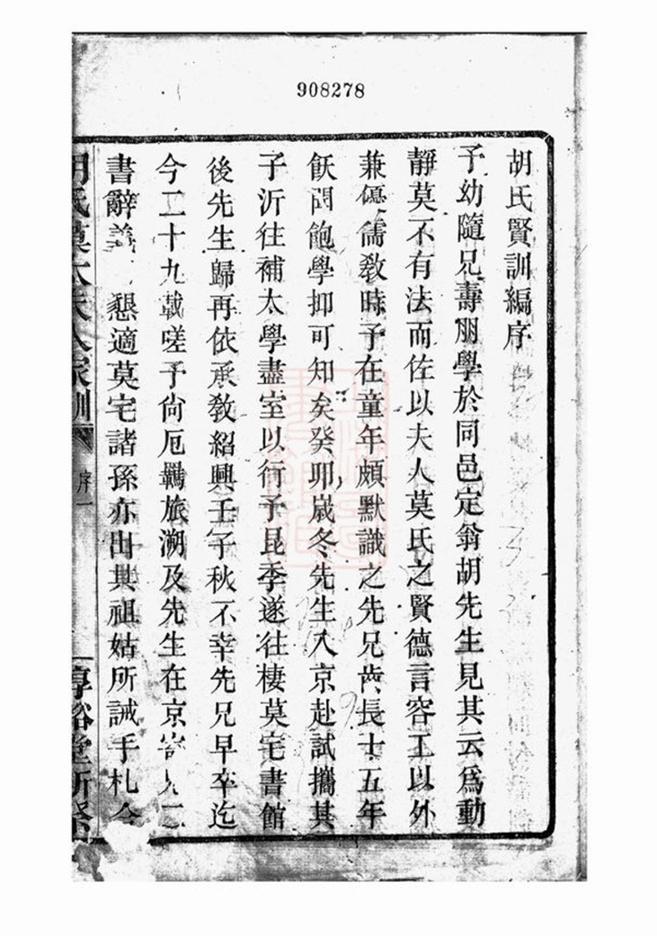 908278
胡氏賢訓編序
予幼隨兄壽朋學於同邑定翁胡先生見其云為動
靜莫不有法而佐以夫人莫氏之賢德言容工以外
兼優儒教時予在童年頗默識之先兄齒長十五年
飫聞飽學抑可知矣癸卯歲冬先生入京赴試攜其
子沂往補太學盡室以行予昆季遂往棲莫宅書館
後先生歸再依承教紹興壬子秋不幸先兄早卒迄
今二十九載嗟予尚厄羈旅溯及先生在京寄兄二
書辭義懇適莫宅諸孫亦出其祖姑所誡手札令
胡氏莫太夫人家訓 序一 惇裕堂